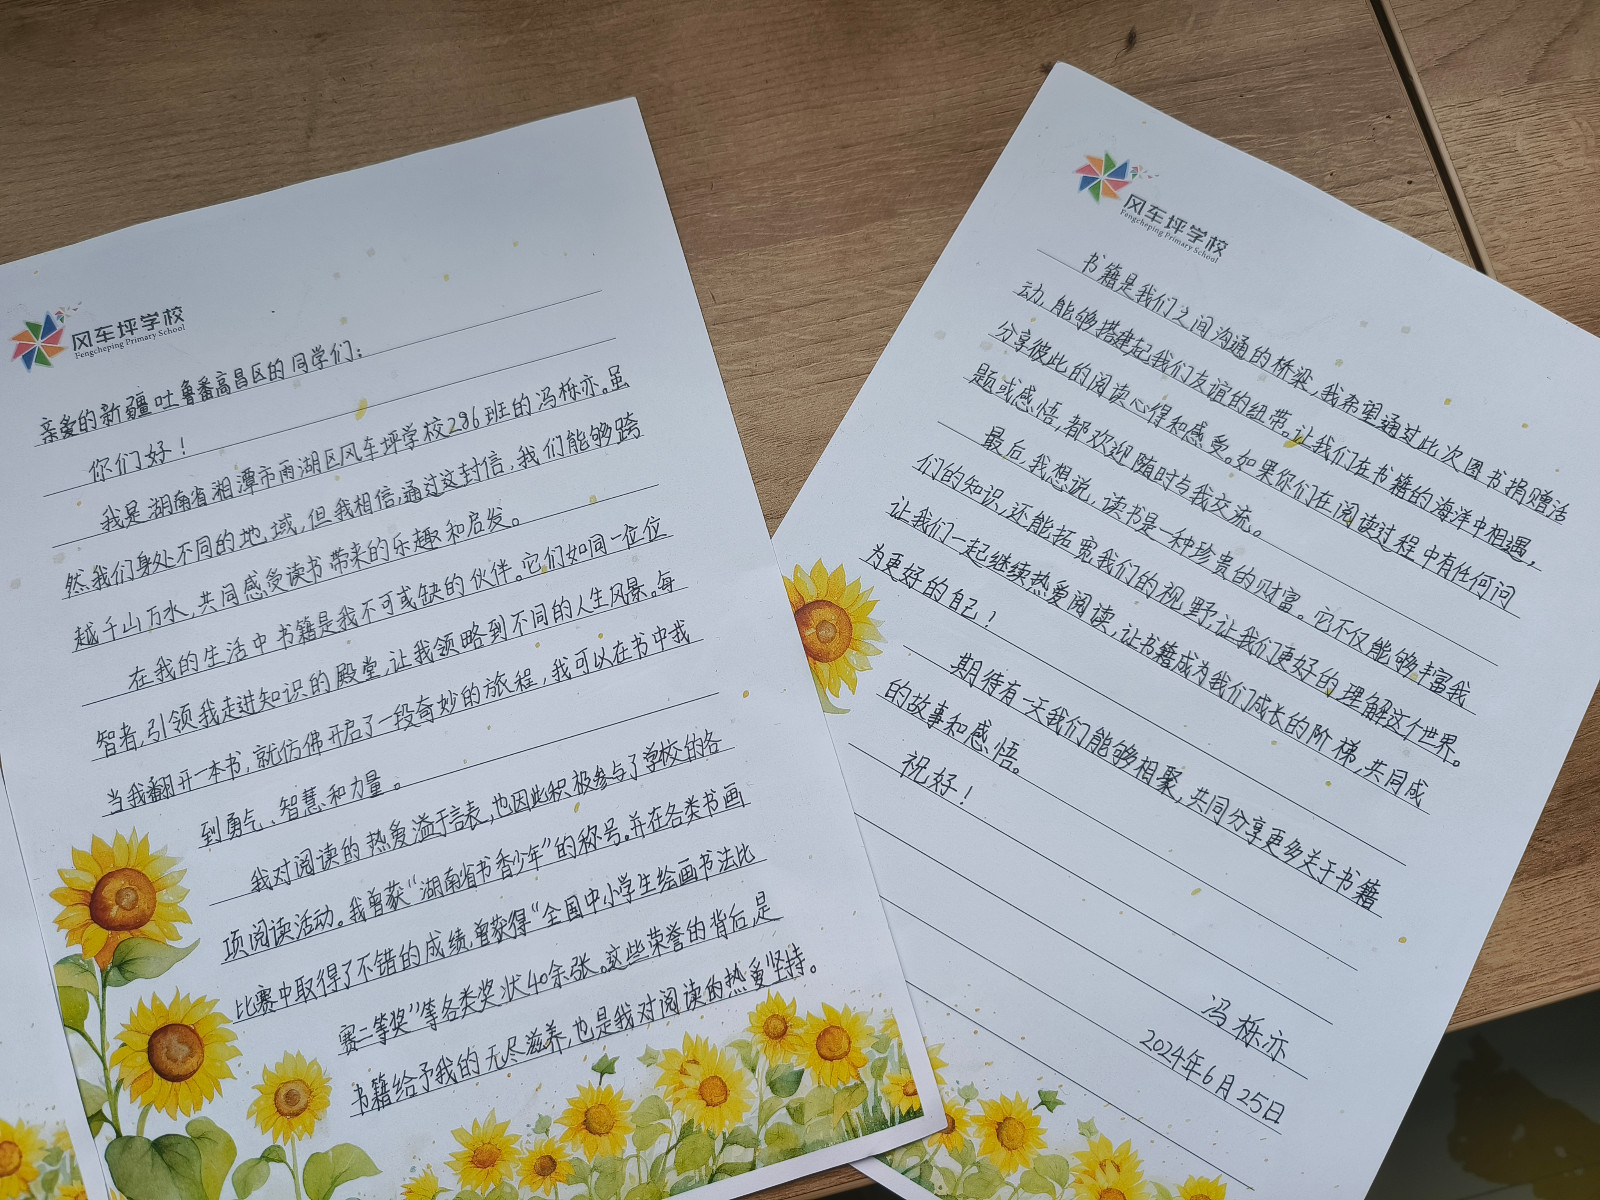 风车坪学校
Fengcheping Primary School
亲爱的新疆吐鲁番高昌区的同学们：
你们好！
我是湖南省湘潭市雨湖区风车坪学校286班的冯栎亦。虽
然我们身处不同的地域，但我相信，通过这封信，我们能够跨
越千山万水，共同感受读书带来的乐趣和启发。
在我的生活中书籍是我不可或缺的伙伴。它们如同一位位
智者，引领我走进知识的殿堂，让我领略到不同的人生风景。每
当我翻开一本书，就仿佛开启了一段奇妙的旅程，我可以在书中找
到勇气、智慧和力量。
我对阅读的热爱溢于言表，也因此积极参与了学校的各
项阅读活动。我曾获“湖南省书香少年”的称号。并在各类书画
比赛中取得了不错的成绩，曾获得“全国中小学生绘画书法比
赛二等奖”等各类奖状40余张。这些荣誉的背后，是
书籍给予我的无尽滋养，也是我对阅读的热爱坚持。
风车坪学校
Fengcheping Primary School
书籍是我们之间沟通的桥梁，我希望通过此次图书捐赠活
动，能够搭建起我们友谊的纽带。让我们在书籍的海洋中相遇，
分享彼此的阅读心得和感受。如果你们在阅读过程中有任何问
题或感悟，都欢迎随时与我交流。
最后，我想说，读书是一种珍贵的财富。它不仅能够丰富我
们的知识，还能拓宽我们的视野，让我们更好的理解这个世界。
让我们一起继续热爱阅读，让书籍成为我们成长的阶梯，共同成
为更好的自己！
期待有一天我们能够相聚，共同分享更多关于书籍
的故事和感悟。
祝好！
冯栎亦
2024年6月25日